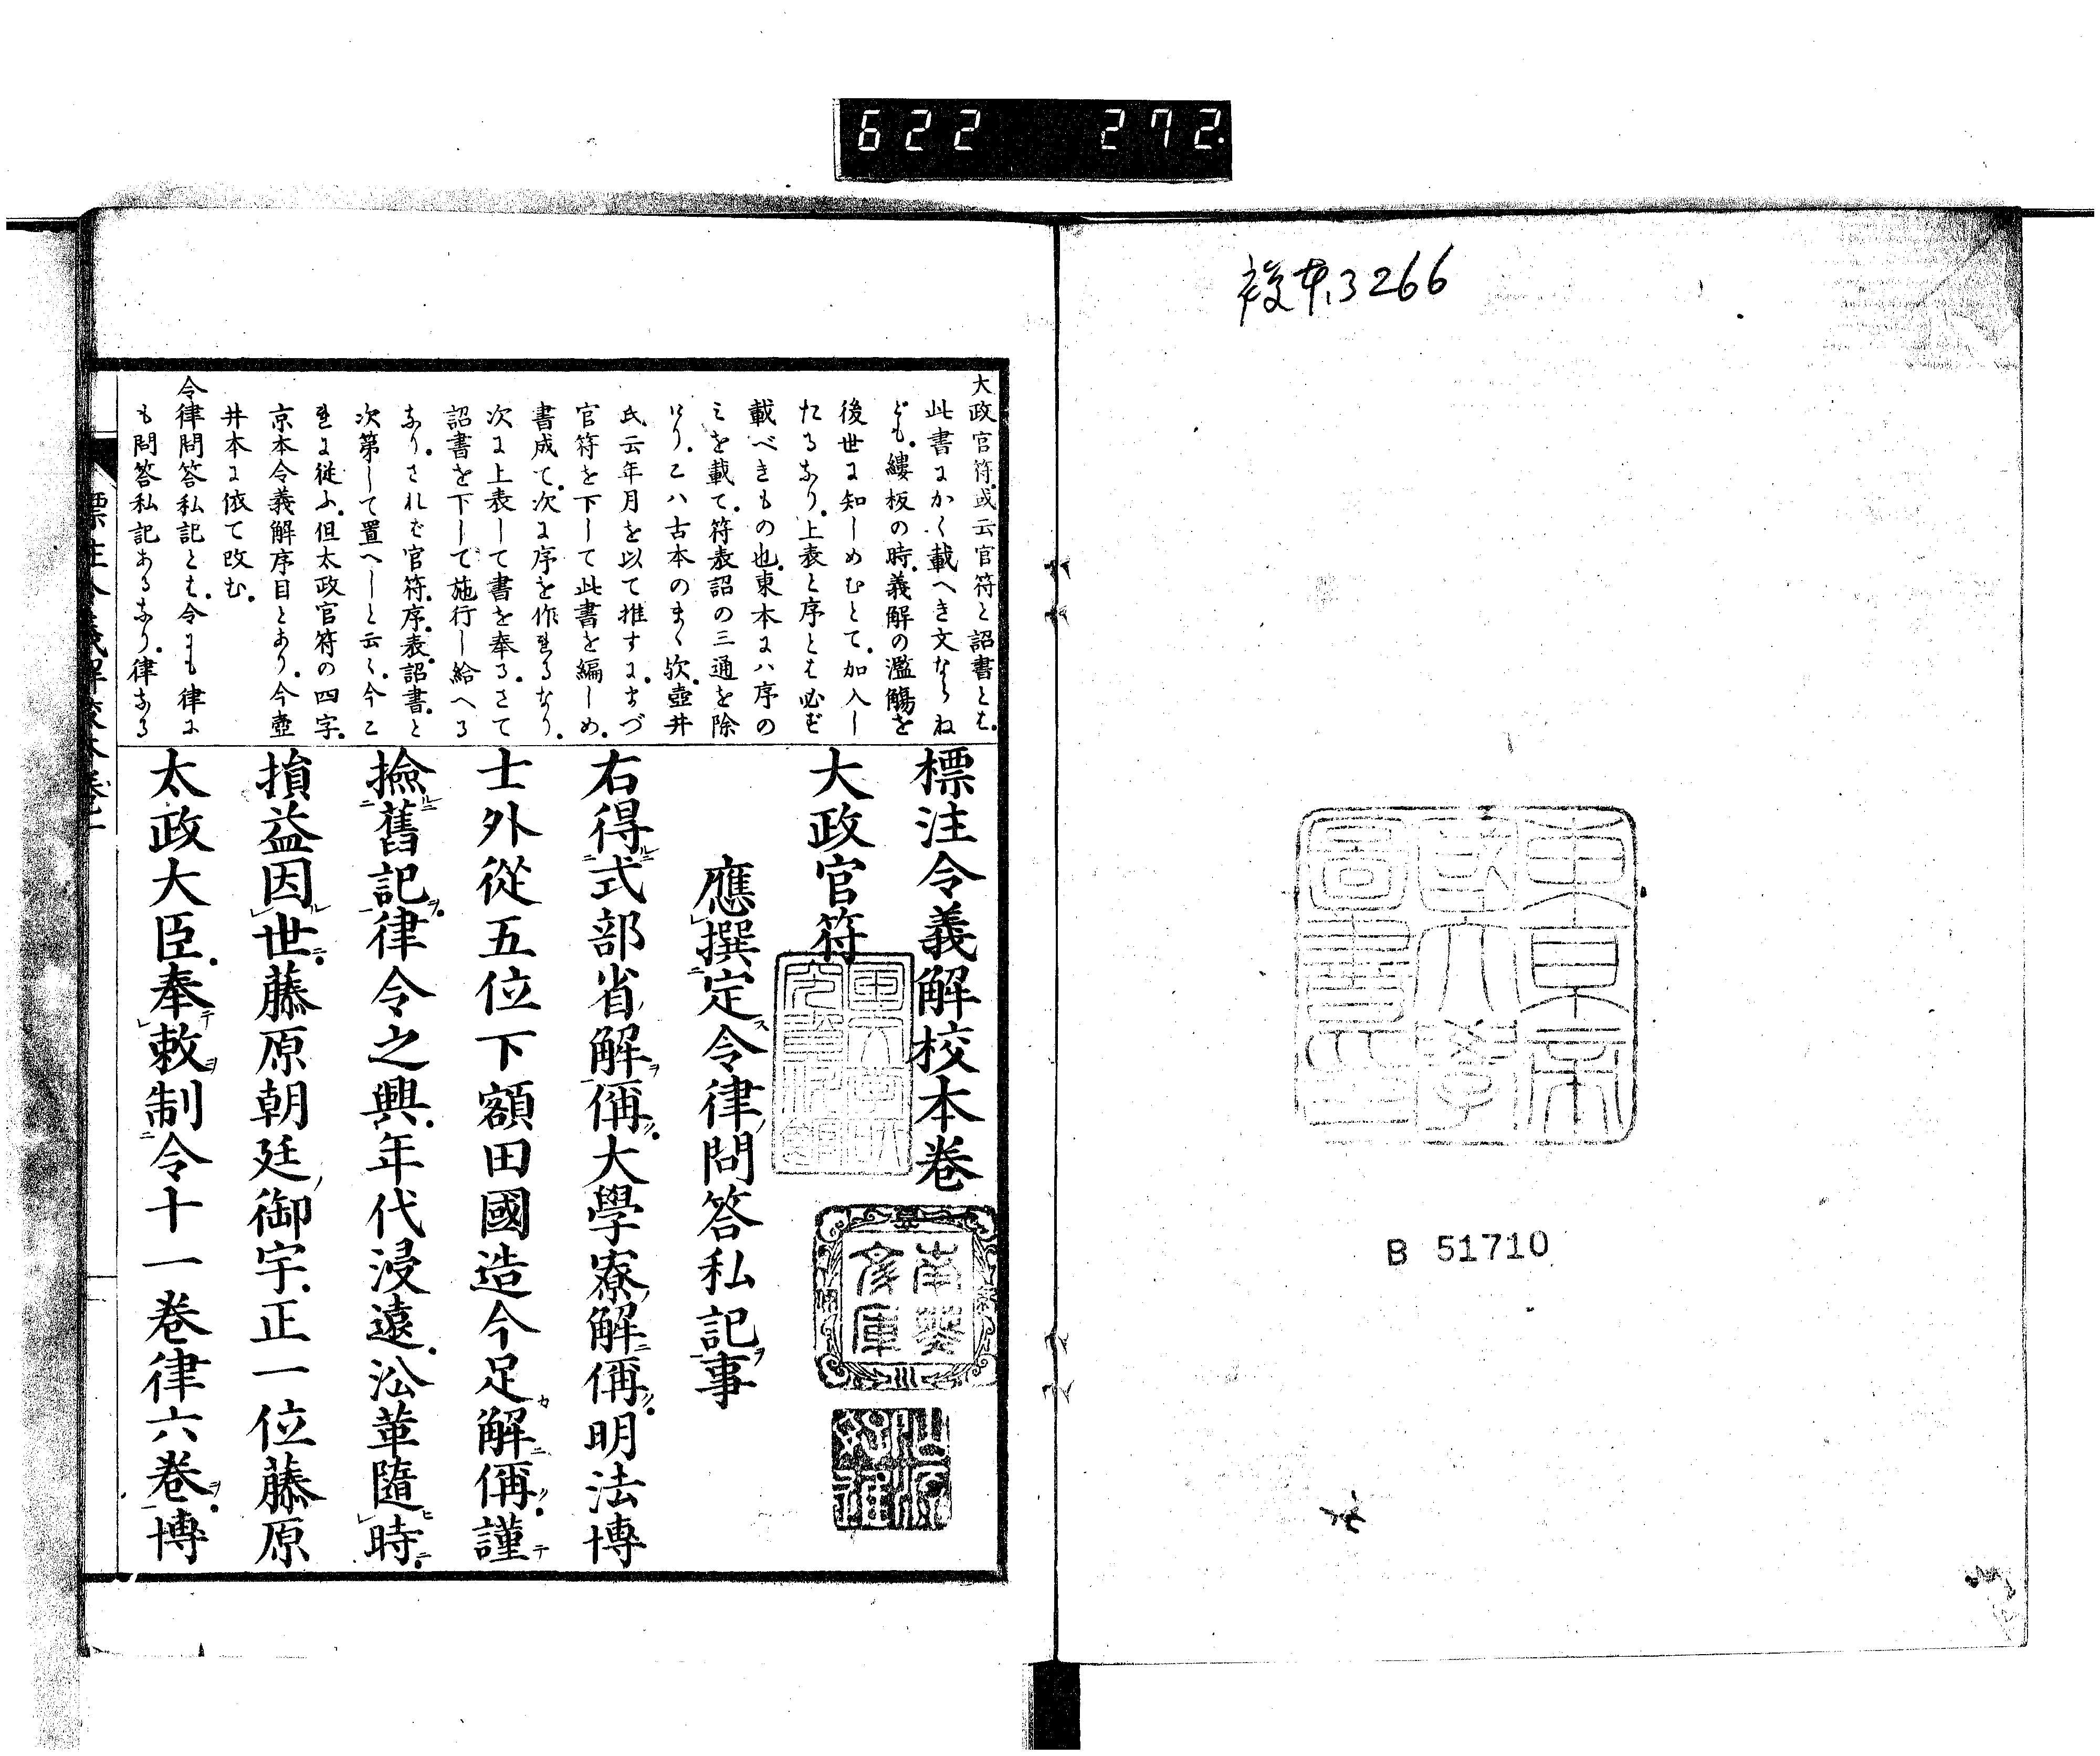 622 272.
複本.3266
東京帝
國大學
圖書印
B 51710
大政官符或云官符と詔書とハ
此書にかく載へき文ならね
ども縷板の時義解の濫觴を
後世に知しめむとて加入し
たるなり上表と序とハ必ず
載べきもの也東本にハ序の
ミを載て符表詔の三通を除
けりこハ古本のまゝ歟壺井
氏云年月を以て推すにまづ
官符を下して此書を編しめ
書成て次に序を作れるなり
次に上表して書を奉るさて
詔書を下して施行し給へる
なりされば官符序表詔書と
次第して置へしと云々今こ
れに従ふ但太政官符の四字
京本令義解序目とあり今壺
井本に依て改む
令律問答私記とハ令にも律に
も問答私記あるなり律なる
標注令義解校本卷
大政官符
應撰定令律問答私記事
右得式部省解偁大學寮解偁明法博
士外從五位下額田國造今足解偁謹
撿舊記律令之興年代浸遠沿革隨時
損益因世藤原朝廷御宇正一位藤原
太政大臣奉敕制令十一卷律六卷博
南葵
文庫
標注令義解校本卷上